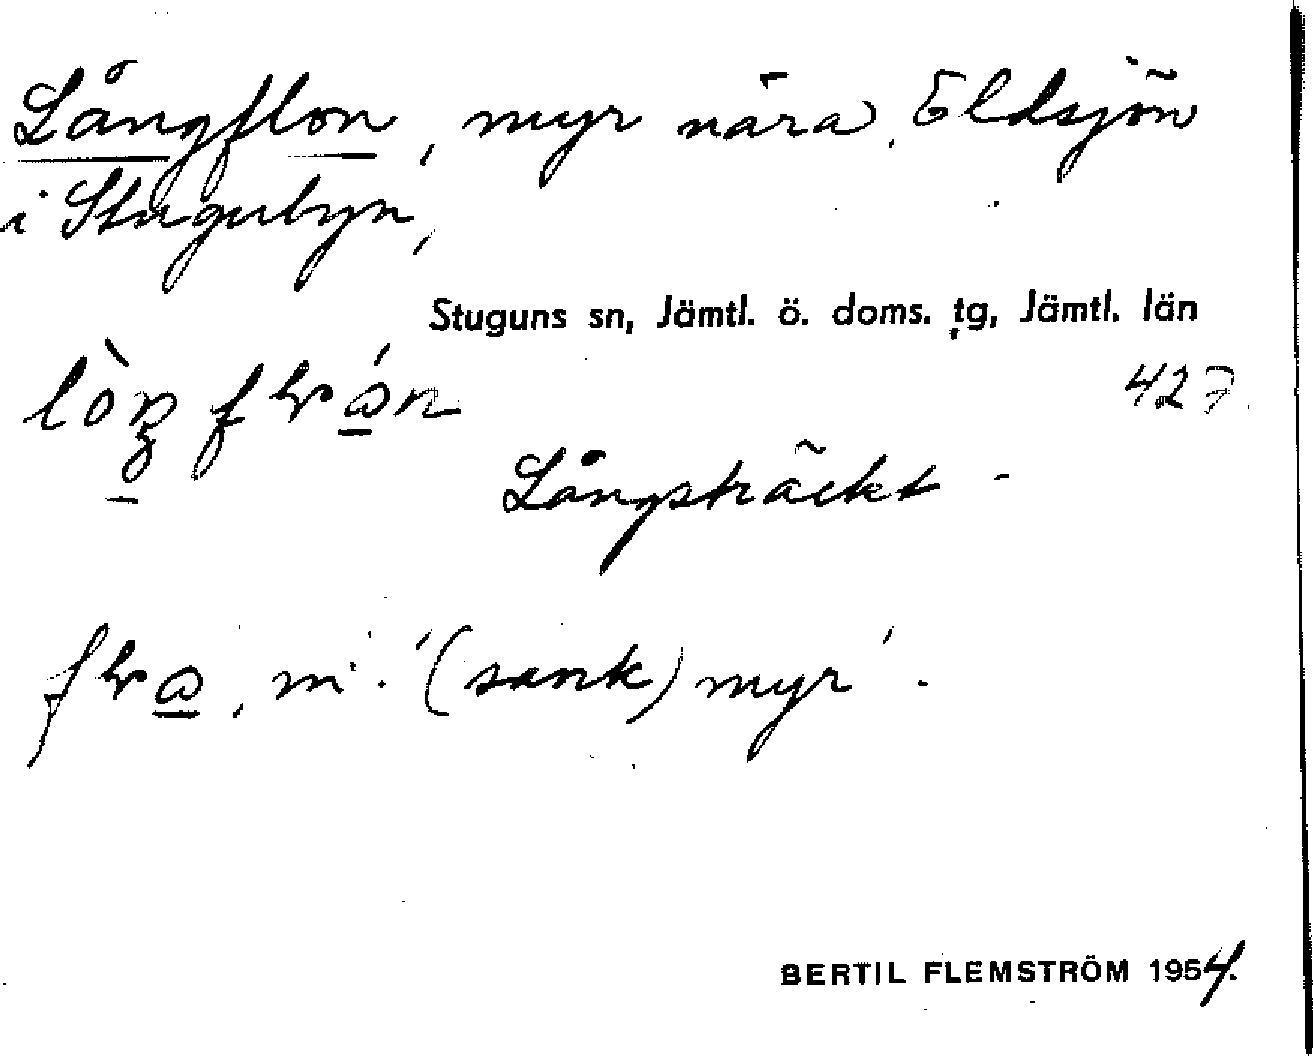 Långflon, myr nära Eldsjön
i Stugubyn,
Stuguns sn, Jämtl. ö. doms. tg, Jämtl. län
427
Långsträckt -
m. '(sank) myr'.
BERTIL FLEMSTRÖM 1954.